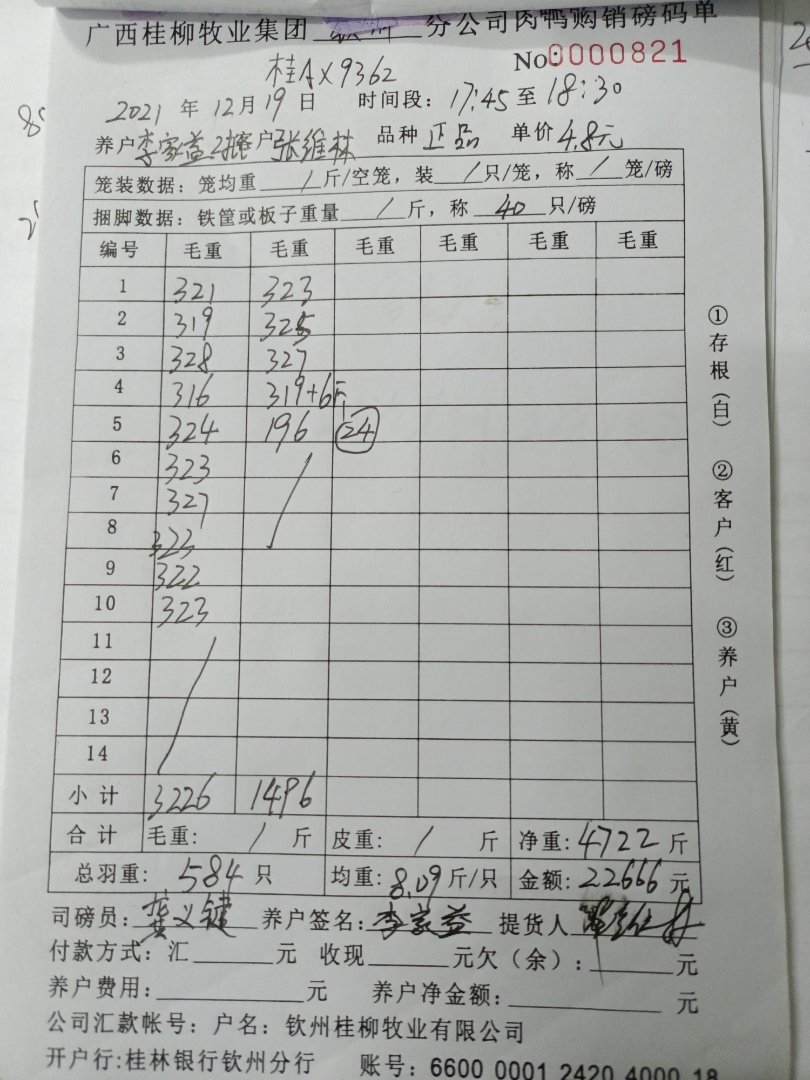 广西桂柳牧业集团 分公司肉鸭购销磅码单
No:0000821
桂AX9362
2021 年 12月19日 时间段: 17:45至18:30
养户李家益2批客户张维林 品种正品 单价4.8元
笼装数据: 笼均重 / 斤/空笼, 装 / 只/笼, 称 / 笼/磅
捆脚数据: 铁筐或板子重量 / 斤, 称 40 只/磅
编号 毛重 毛重 毛重 毛重 毛重 毛重
1 321 323
2 319 325
3 328 327
4 316 319+6斤
5 324 196 24
6 323
7 327
8 323
9 322
10 323
11
12
13
14
小计 3226 1496
合计 毛重: / 斤 皮重: / 斤 净重: 4722 斤
总羽重: 584 只 均重: 8.09 斤/只 金额: 22666 元
司磅员: 龚义键 养户签名: 李家益 提货人
付款方式: 汇 元 收现 元欠(余): 元
养户费用: 元 养户净金额: 元
公司汇款帐号: 户名: 钦州桂柳牧业有限公司
开户行:桂林银行钦州分行 账号: 6600 0001 2420 4000 18
①存根(白) ②客户(红) ③养户(黄)